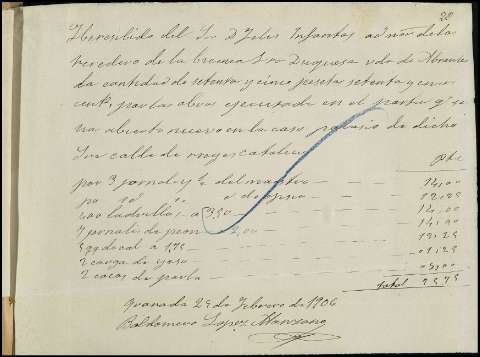 20
He recibido del Sr D Felix Infantas adnor de la
heredera de la Exma Sra Duquesa vda de Abrantes
la cantidad de setenta y cinco pesetas setenta y cinco
cents, por las obras ejecutadas en el portón q. se
ha abierto nuevo en la casa palacio de dicha
Sra calle de reyes catolicos
Ptas
por 3 jornales y ½ del maestro 14,00
de
400 ladrillos a 3,50 14,00
7 jornales de peon 2,00 14,00
de cal a 1,75 12,25
2 cargas de yeso 01,25
2 cocas de
total 75,75
Granada 24 de Febrero de 1906
Baldomero Lopez Manzano